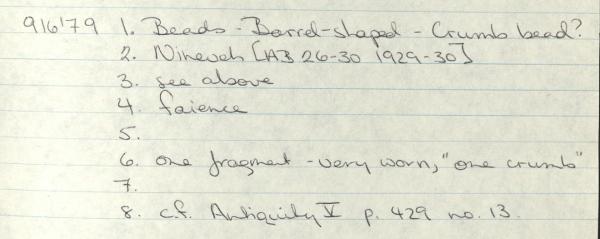 916'79 1. Beads - Barrel-shaped - Crumb bead?
2. Nineveh [AB 26-30 1929-30]
3. see above
4. faience
5.
6. one fragment - very worn, "one crumb"
7.
8. c.f. Antiquity V p. 429 no. 13.